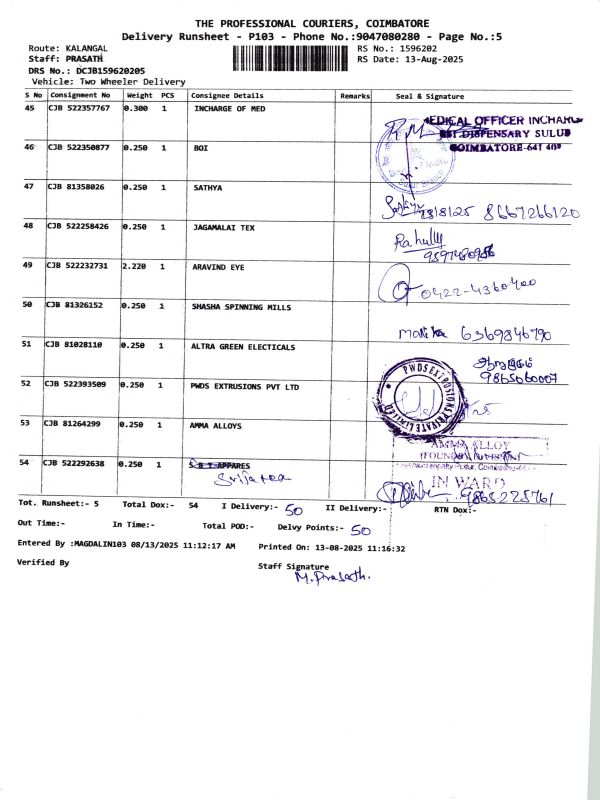 THE PROFESSIONAL COURIERS, COIMBATORE
Delivery Runsheet - P103 - Phone No.:9047080280 - Page No.:5
Route: KALANGAL
RS No.: 1596202
Staff: PRASATH
RS Date: 13-Aug-2025
DRS No.: DCJB159620205
Vehicle: Two Wheeler Delivery
S No Consignment No Weight PCS Consignee Details Remarks Seal & Signature
45 CJB 522357767 0.300 1 INCHARGE OF MED
MEDICAL OFFICER INCHARGE
ESI DISPENSARY SULUR
COIMBATORE-641 402
46 CJB 522350877 0.250 1 BOI
47 CJB 81358026 0.250 1 SATHYA
8667266120
48 CJB 522258426 0.250 1 JAGAMALAI TEX
Rahull
49 CJB 522232731 2.220 1 ARAVIND EYE
0422-4360400
50 CJB 81326152 0.250 1 SHASHA SPINNING MILLS
6369846790
51 CJB 81028110 0.250 1 ALTRA GREEN ELECTICALS
9865060007
52 CJB 522393509 0.250 1 PWDS EXTRUSIONS PVT LTD
PWDS EXTRUSIONS PRIVATE LIMITED
53 CJB 81264299 0.250 1 AMMA ALLOYS
AMMA ALLOY
(FOUNDRY DIVISION)
54 CJB 522292638 0.250 1 S B T APPARES
IN WARD
9865225761
Tot. Runsheet:- 5 Total Dox:- 54 I Delivery:- 50 II Delivery:- RTN Dox:-
Out Time:- In Time:- Total POD:- Delvy Points:- 50
Entered By :MAGDALIN103 08/13/2025 11:12:17 AM Printed On: 13-08-2025 11:16:32
Verified By Staff Signature
M. Prasath.